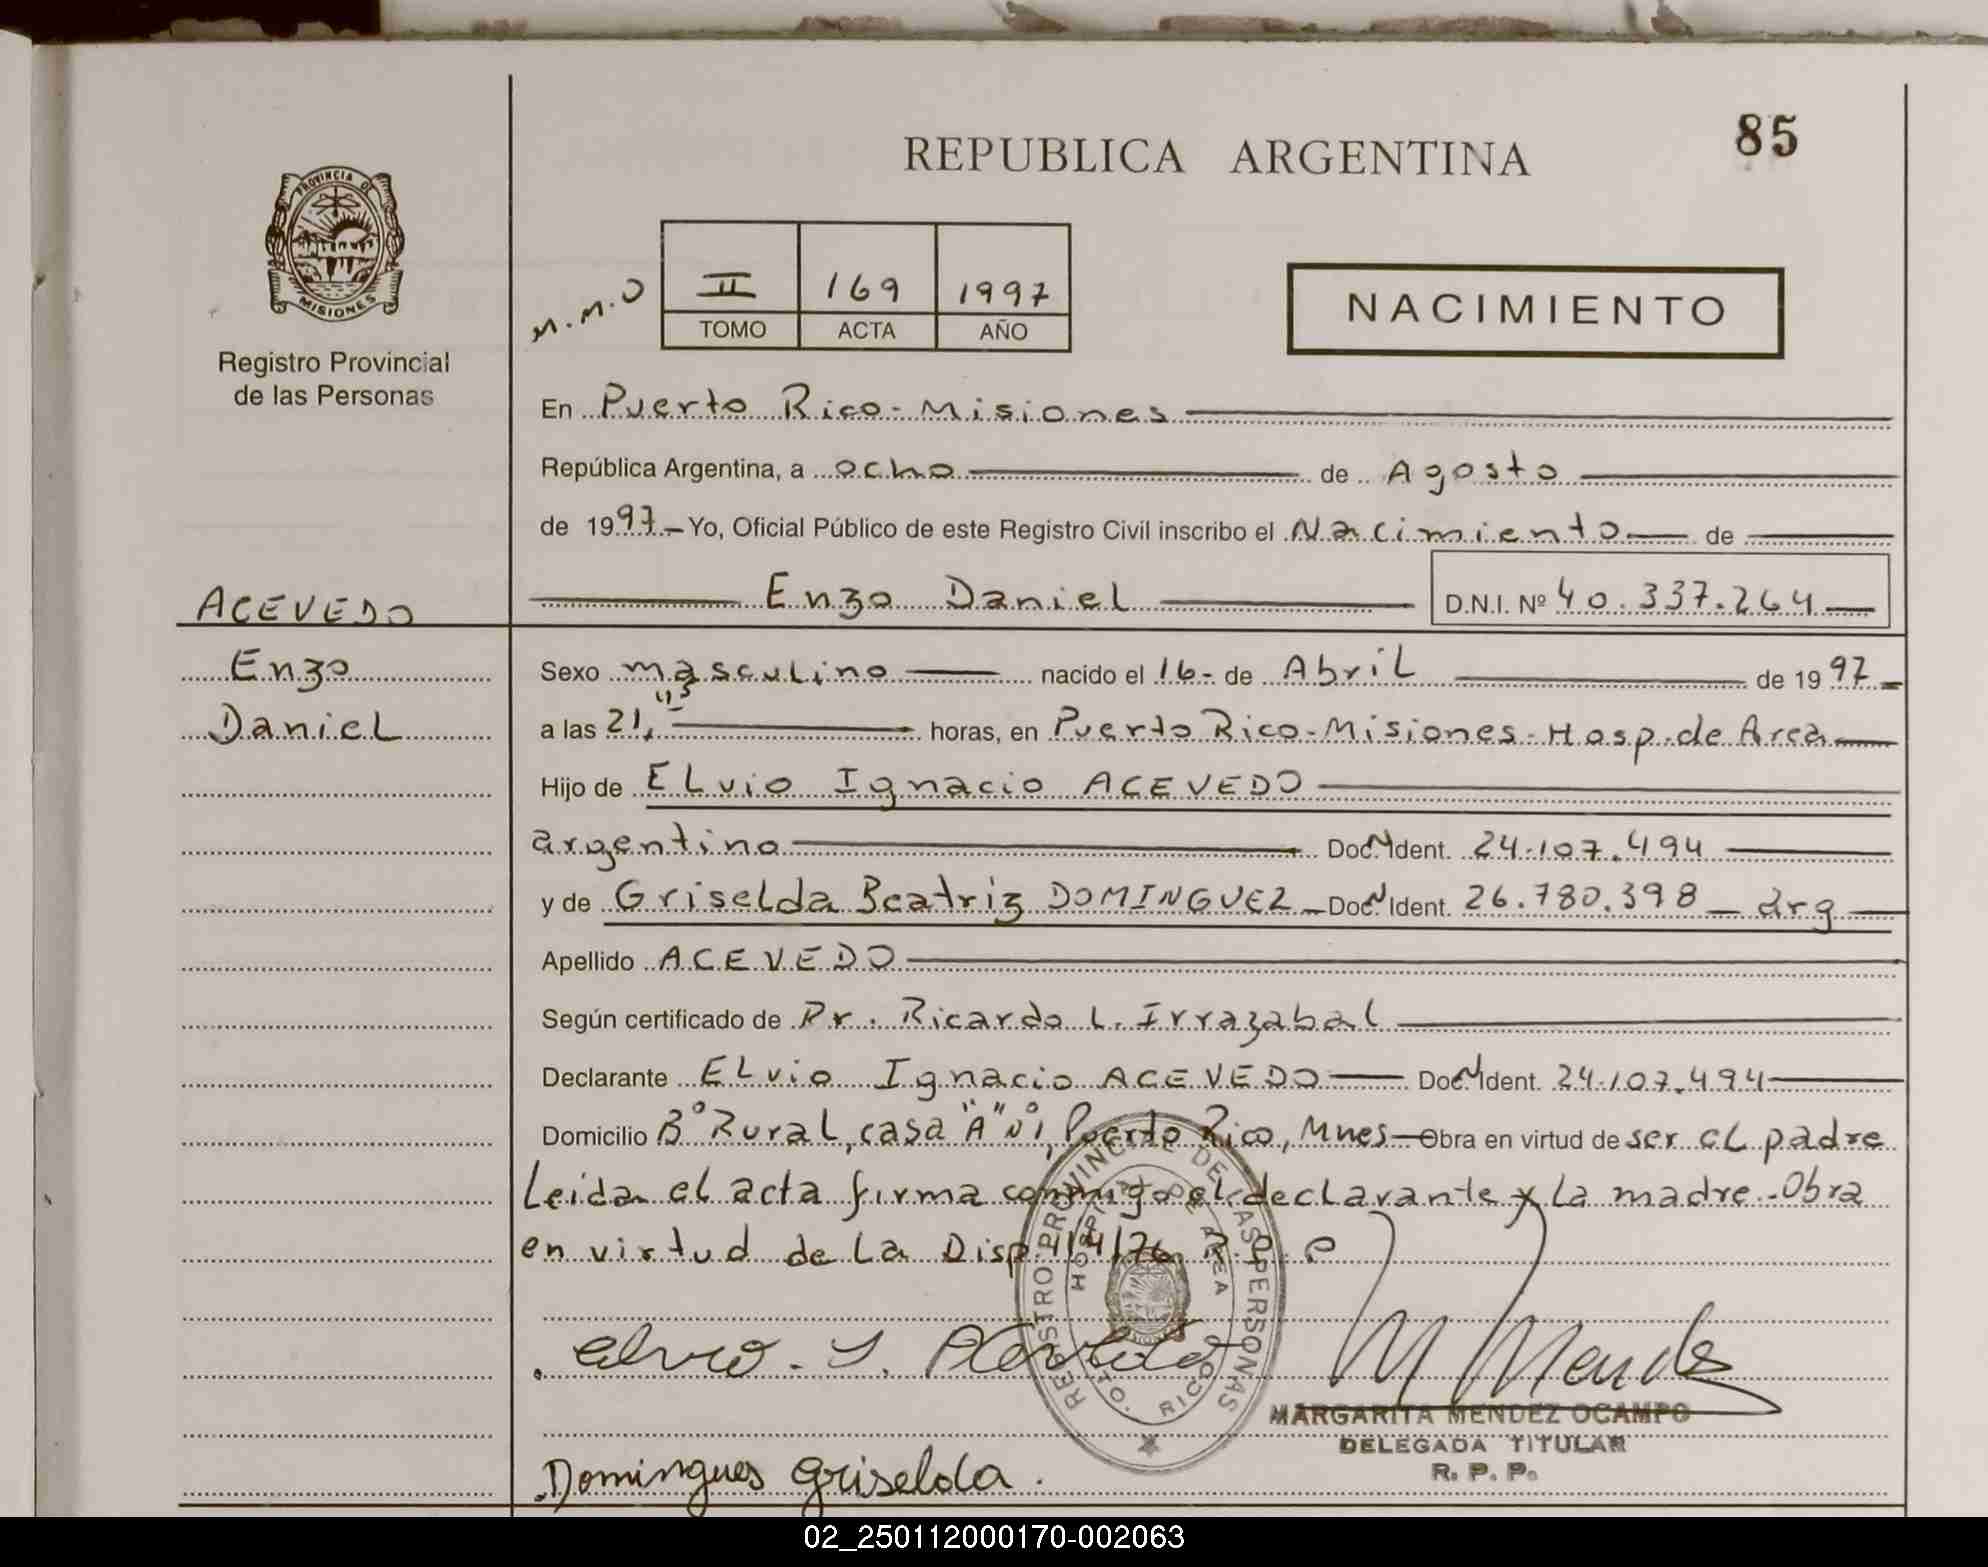 85
REPUBLICA ARGENTINA
PROVINCIA DE
MISIONES
Registro Provincial
de las Personas
M.M.O
II 169 1997
TOMO ACTA AÑO
NACIMIENTO
En Puerto Rico - Misiones
República Argentina, a ocho de Agosto
de 1997 - Yo, Oficial Público de este Registro Civil inscribo el Nacimiento de
Enzo Daniel D.N.I. Nº 40.337.264
ACEVEDO
Enzo
Daniel
Sexo masculino nacido el 16 - de Abril de 1997
a las 21,45 horas, en Puerto Rico - Misiones - Hosp. de Area
Hijo de ELvio Ignacio ACEVEDO
argentino Doc. N Ident. 24.107.494
y de Griselda Beatriz DOMINGUEZ Doc. N Ident. 26.780.398 arg
Apellido ACEVEDO
Según certificado de Dr. Ricardo L. Irrazabal
Declarante ELvio Ignacio ACEVEDO Doc. N Ident. 24.107.494
Domicilio Bº Rural, casa "A" Nº 1, Puerto Rico, Mnes - Obra en virtud de ser el padre
Leida el acta firma conmigo el declarante y la madre. Obra
en virtud de la Disp. 114/76 R.P.P
REGISTRO PROVINCIAL DE LAS PERSONAS
HOSPITAL DE AREA
PTO. RICO
Elvio. I. Acevedo
M Mendez
MARGARITA MENDEZ OCAMPO
DELEGADA TITULAR
R. P. P.
Domingues Griselda.
02_250112000170-002063